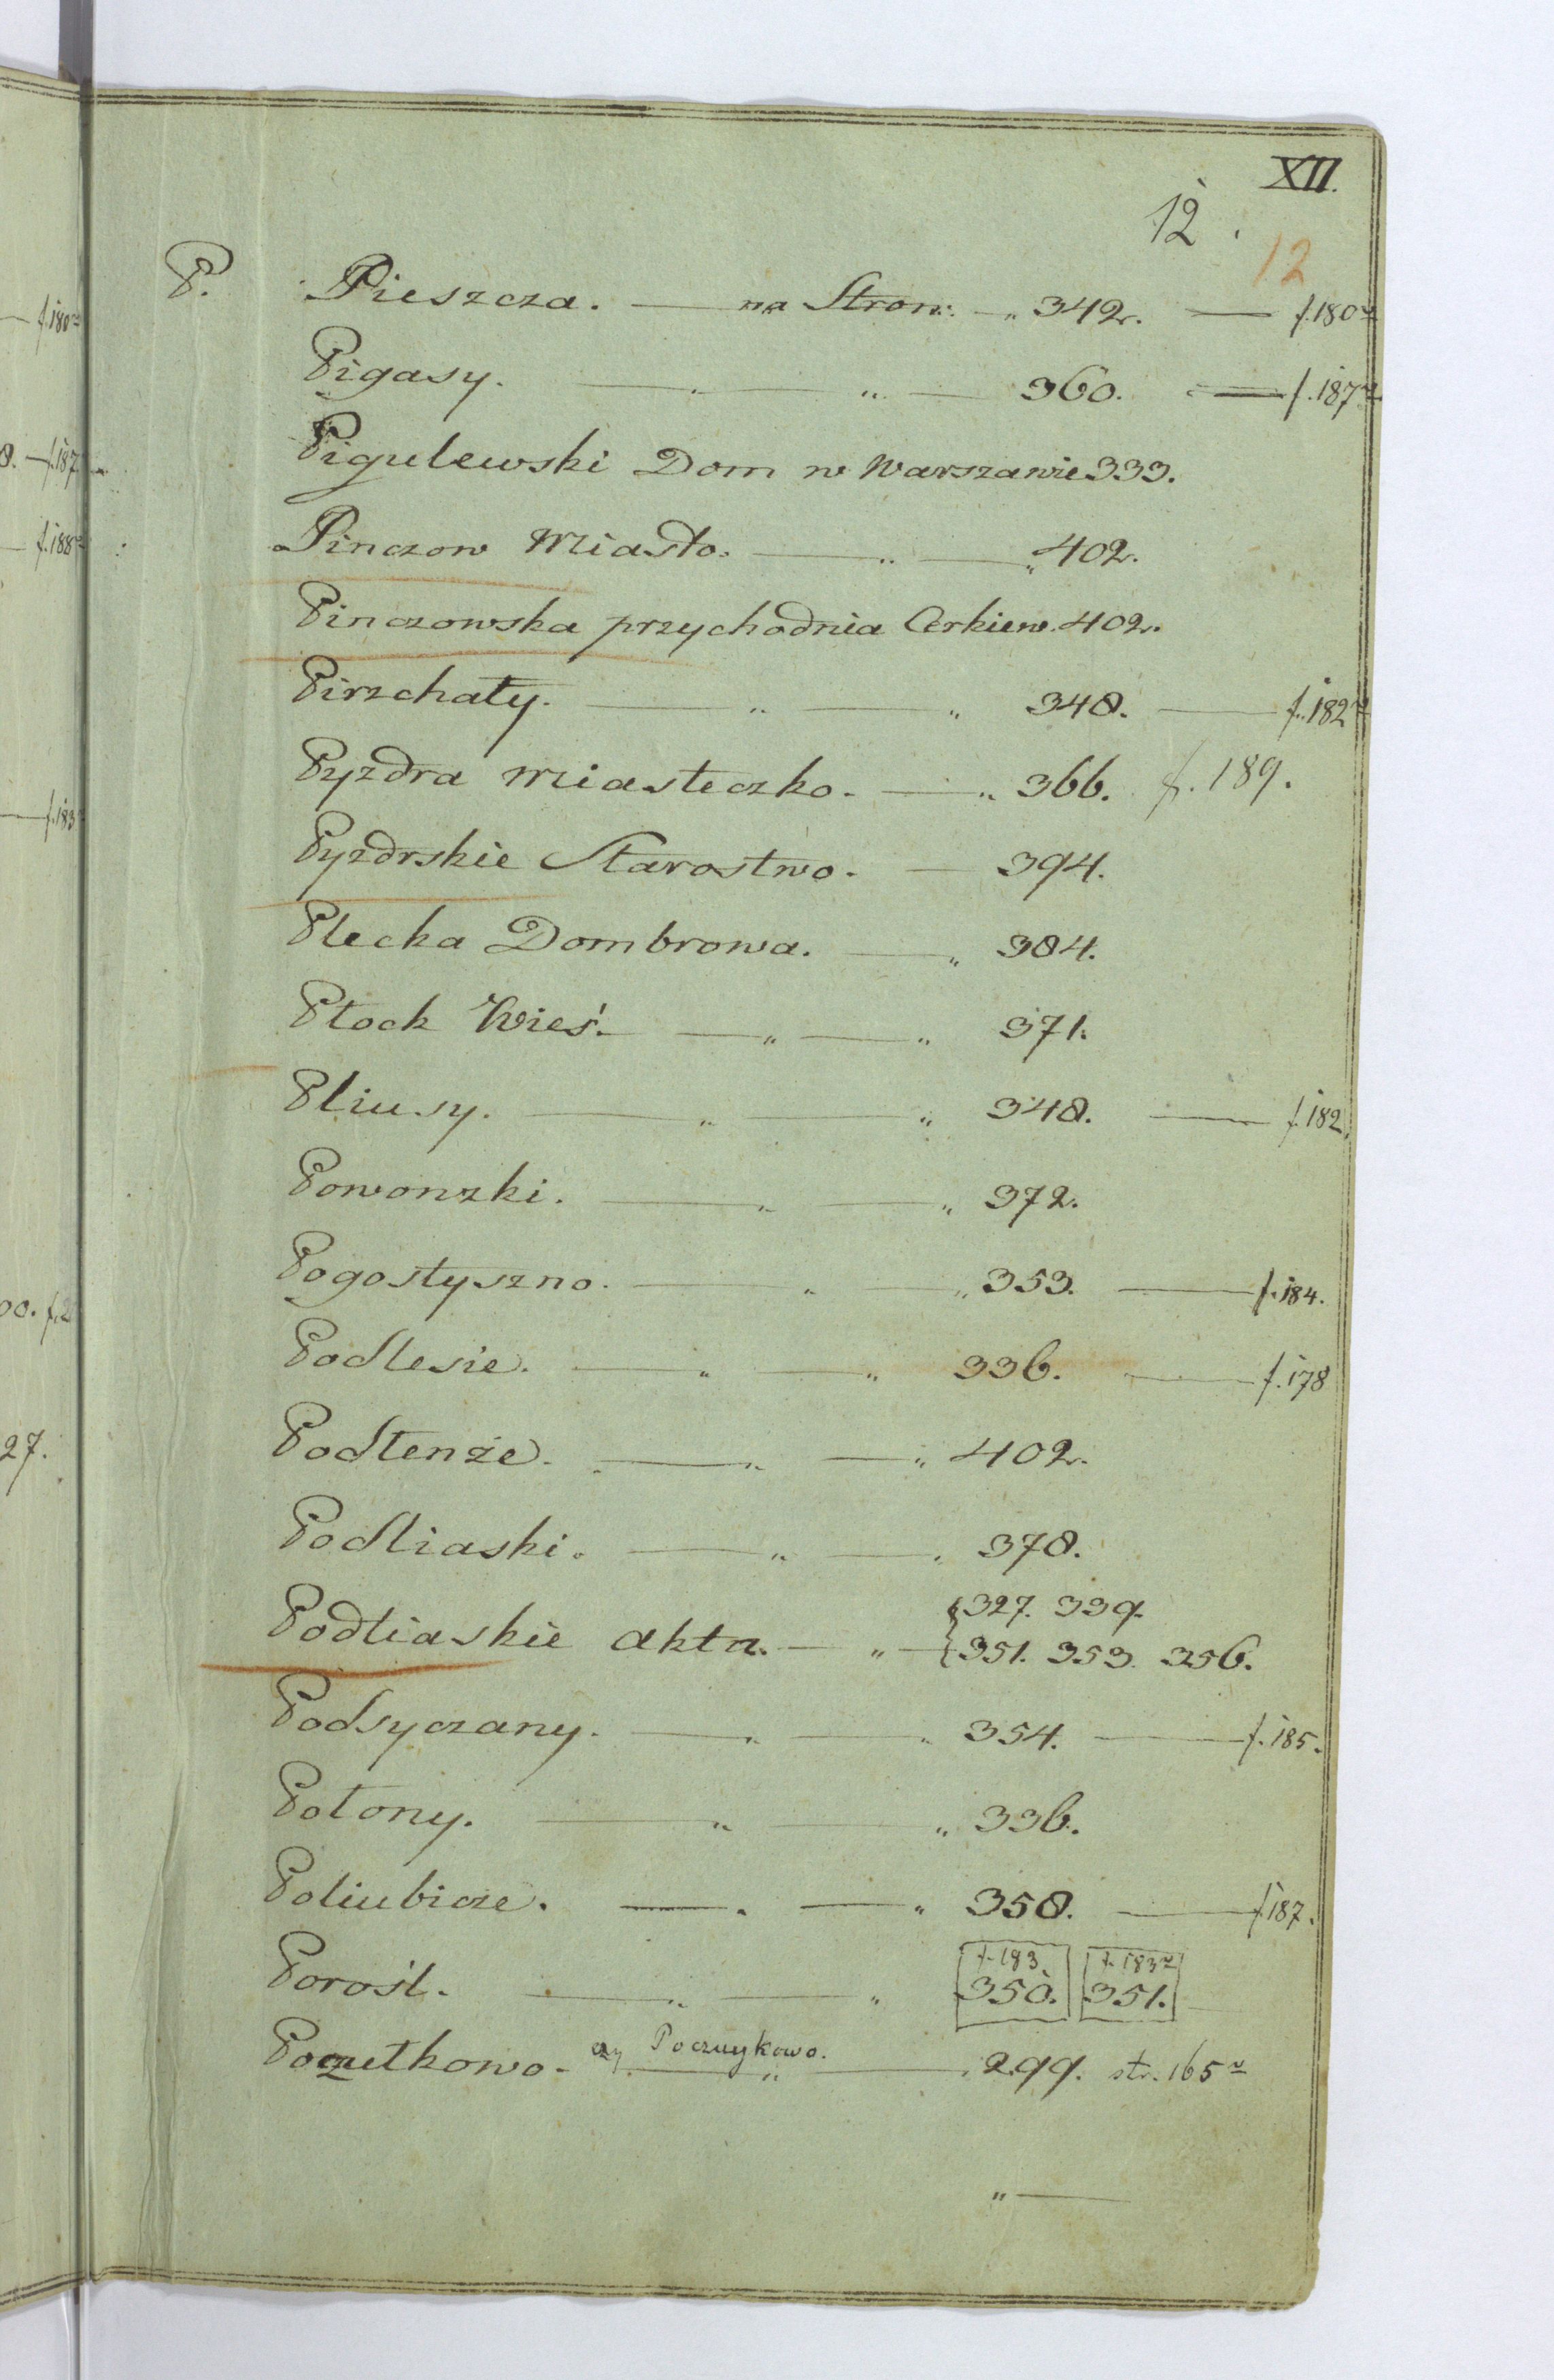 XII.
12.
12
P. Pieszcza. — na Stron: — „ 342. — f. 180v
Pigasy. — „ — „ — 360. — f. 187v
Pigulewski Dom w Warszawie 333.
Pinczow Miasto. — „ — „ 402.
Pinczowska przychodnia Cerkiew. 402.
Pirzchały. — „ — „ 348. — f. 182v
Pyzdra Miasteczko. — „ 366. f. 189.
Pyzdrskie Starostwo. — 394.
Plecka Dombrowa. — „ 384.
Płock Wieś. — „ — „ 371.
Pliusy. — „ — „ 348. — f. 182.
Powonzki. — „ — „ 372.
Pogostyszno. — „ — „ 353. — f. 184.
Podlesie. — „ — „ 336. — f. 178
Podłenże. — „ — „ 402.
Podliaski. — „ — „ 378.
{327. 339.
Podliaskie akta. — „ — {351. 353. 356.
Podsyczany. — „ — „ 354. — f. 185.
Połony. — „ — „ 336.
Poliubicze. — „ — „ 358. — f. 187.
f. 183. f. 183v
Porośl. — „ — „ 350. 351.
czy Poczuykowo.
Poczutkowo. — „ — 299. str. 165v
„ —
f. 180v
8. — f. 187
f. 188v
f. 183
00. f. 2
27.